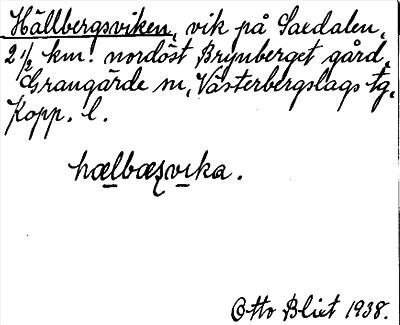 Hällbergsviken, vik på Saxdalen,
2 1/2 km. nordöst Brynberget gård,
Grangärde sn, Västerbergslags tg,
Kopp. l.
hælbæʂvika.
Otto Blixt 1938.